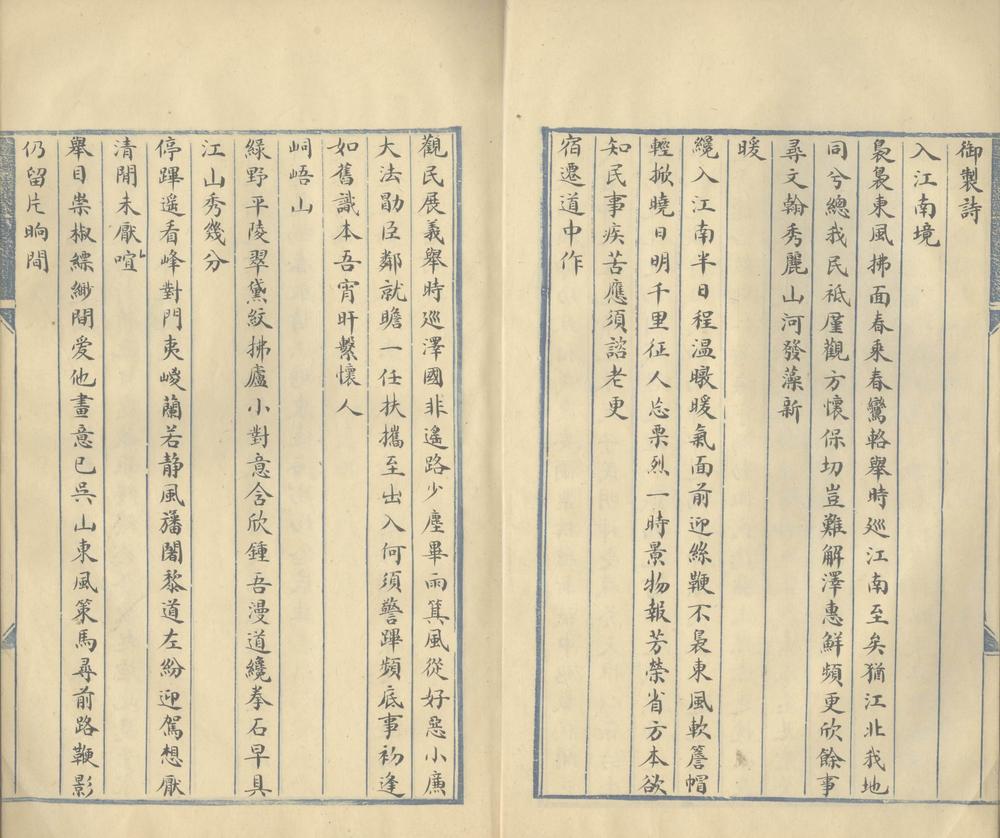 御製詩
入江南境
裊裊東風拂面春乘春鸞輅舉時巡江南至矣猶江北我地
同兮總我民祗厪觀方懷保切豈難解澤惠鮮頻更欣餘事
尋文翰秀麗山河發藻新
暖
纔入江南半日程溫暾暖氣面前迎絲鞭不裊東風軟簷帽
輕掀曉日明千里征人忘栗烈一時景物報芳榮省方本欲
知民事疾苦應須諮老更
宿遷道中作
觀民展義舉時巡澤國非遙路少塵畢雨箕風從好惡小廉
大法勖臣鄰就瞻一任扶攜至出入何須警蹕頻底事初逢
如舊識本吾宵旰繫懷人
峒峿山
綠野平陵翠黛紋拂廬小對意含欣鍾吾漫道纔拳石早具
江山秀幾分
停蹕遙看峰對門夷崚蘭若静風旛闍黎道左紛迎駕想厭
清閒未厭喧
舉目崇椒縹緲間愛他畫意已吳山東風策馬尋前路鞭影
仍留片晌間